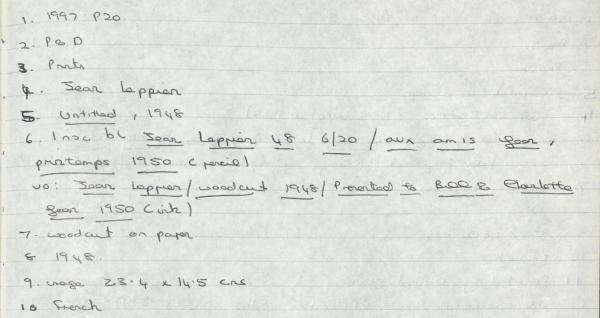 1. 1997 P20
2. P & D
3. Prints
4. Jean Leppien
5. Untitled, 1948
6. Insc bl Jean Leppien 48 6/20 / aux amis Gear,
printemps 1950 (pencil)
vo: Jean Leppien / woodcut 1948 / Presented to Bill & Charlotte
Gear 1950 (ink)
7. woodcut on paper
8 1948
9. image 23.4 x 14.5 cms
10 French